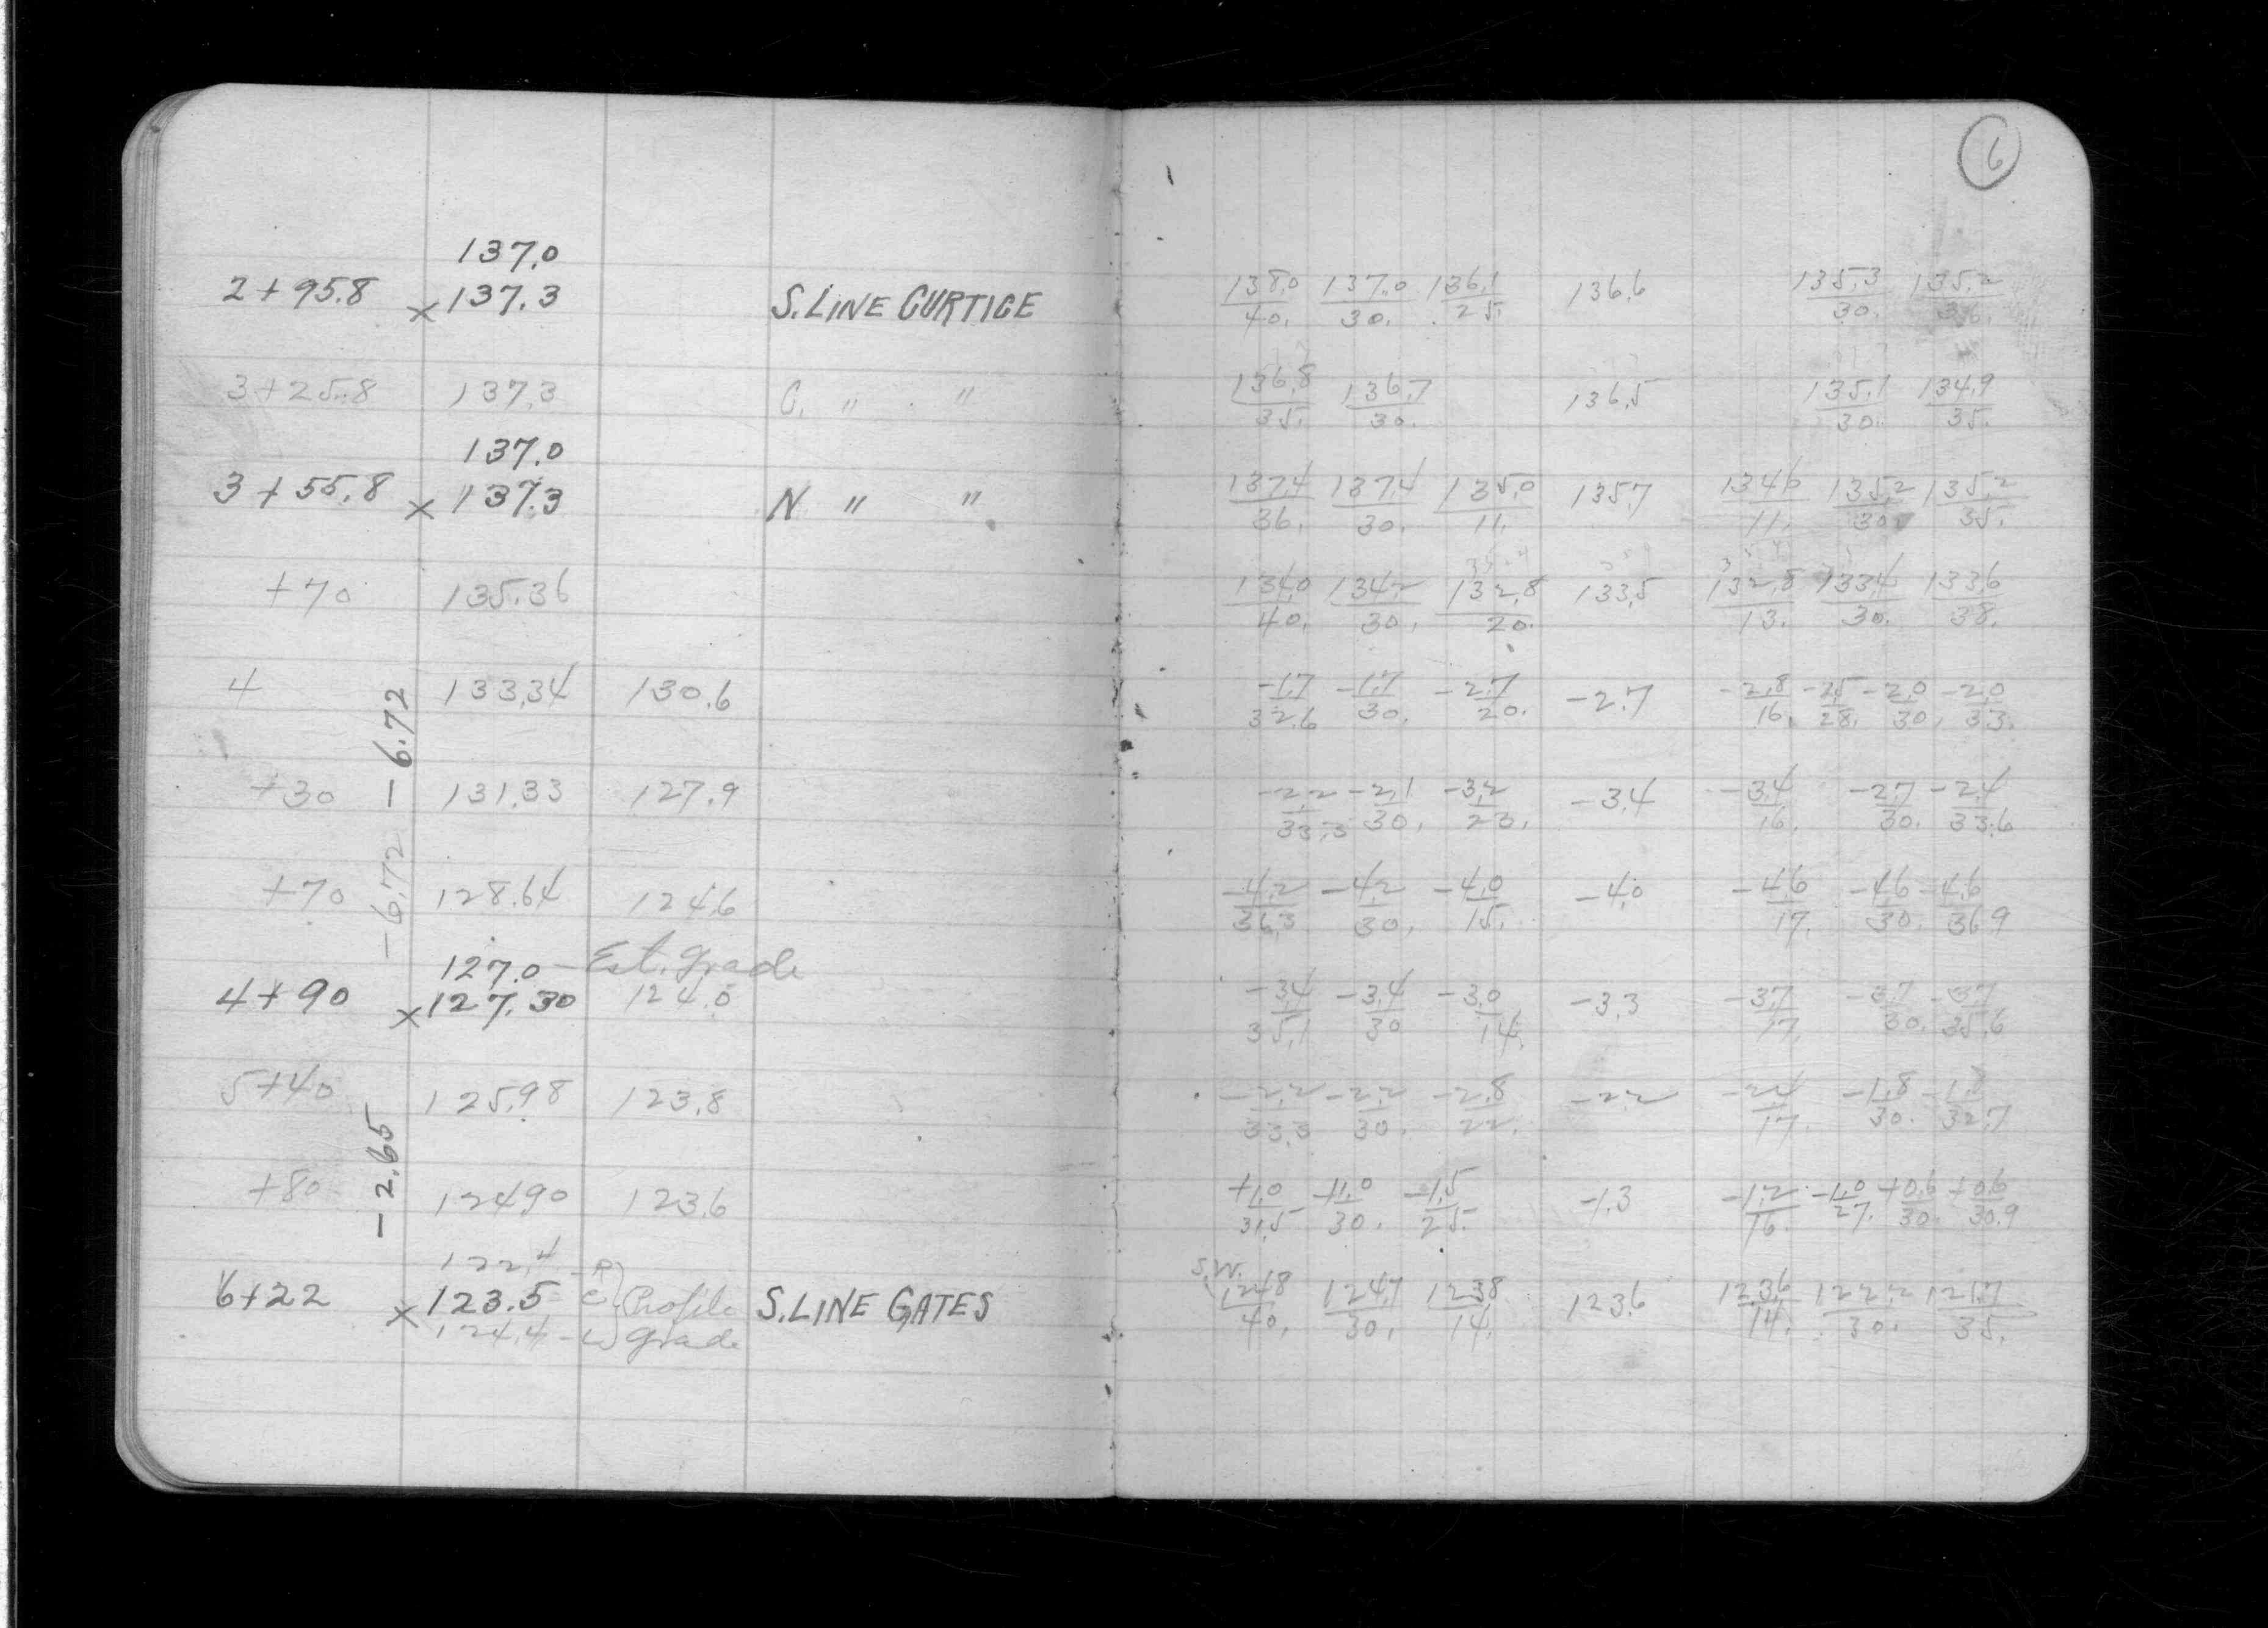 6
137.0
2+95.8 x 137.3 S.LINE CURTICE 138.0/40. 137.0/30. 136.1/25. 136.6 135.3/30. 135.2/36.
3+25.8 137.3 C. " " 136.8/35. 136.7/30. 136.5 135.1/30. 134.9/35.
137.0
3+55.8 x 137.3 N " " 137.4/36. 137.4/30. 135.0/11. 135.7 134.6/11. 135.2/30. 135.2/35.
+70 135.36 134.0/40. 134.2/30. 132.8/20. 133.5 132.8/13. 133.4/30. 133.6/38.
4 133.34 130.6 -1.7/32.6 -1.7/30. -2.7/20. -2.7 -2.8/16. -2.5/28. -2.0/30. -2.0/33.
-6.72
+30 131.33 127.9 -2.2/33.3 -2.1/30. -3.2/23. -3.4 -3.4/16. -2.7/30. -2.4/33.6
-6.72
+70 128.64 124.6 -4.2/36.3 -4.2/30. -4.0/15. -4.0 -4.6/17. -4.6/30. -4.6/36.9
127.0 - Est. Grade
4+90 x 127.30 124.0 -3.4/35.1 -3.4/30 -3.0/14. -3.3 -3.7/17. -3.7/30. -3.7/35.6
5+40 125.98 123.8 -2.2/33.3 -2.2/30. -2.8/22. -2.2 -2.4/17. -1.8/30. -1.8/32.7
-2.65
+80 124.90 123.6 +1.0/31.5 +1.0/30. -1.5/25. -1.3 -1.2/16. -1.0/27. +0.6/30. +0.6/30.9
122.4 - R
S.W.
6+22 x 123.5 - C Profile S.LINE GATES 124.8/40. 124.7/30. 123.8/14. 123.6 123.6/14. 122.2/30. 121.7/35.
124.4 - L Grade